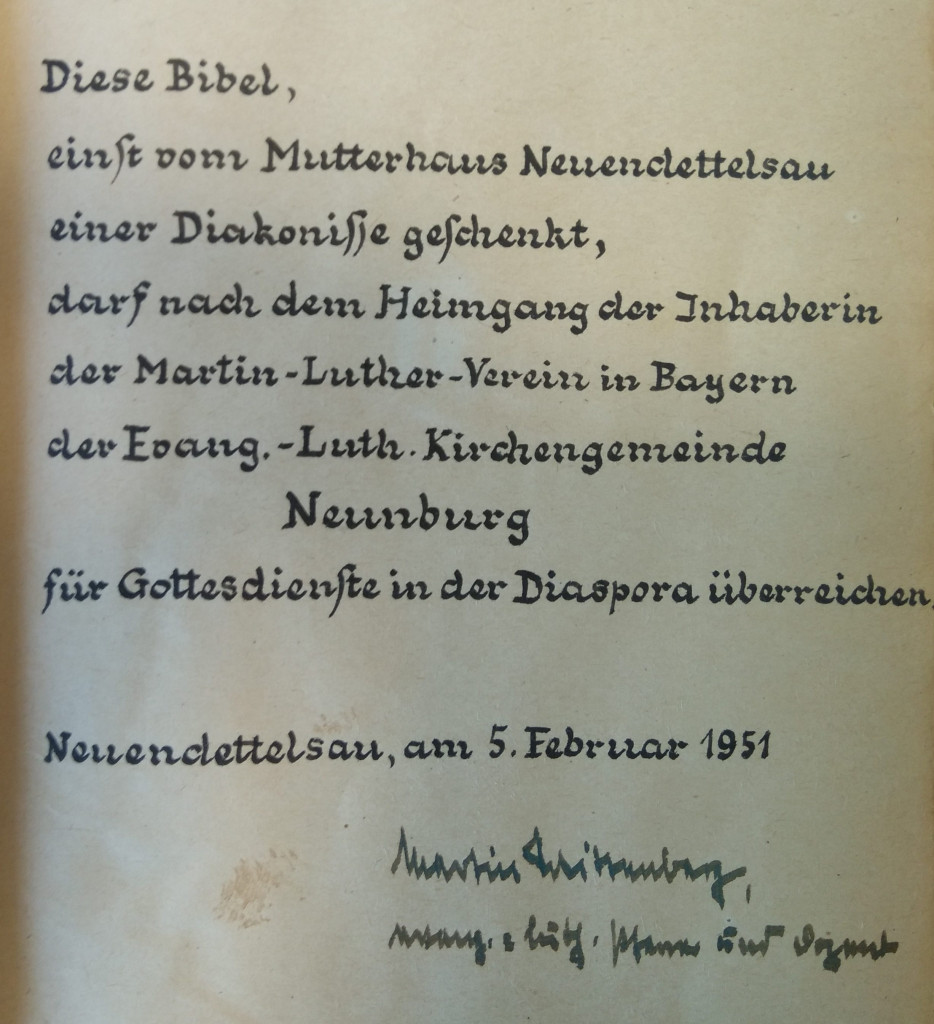 Diese Bibel,
einſt vom Mutterhaus Neuendettelsau
einer Diakoniſſe geſchenkt,
darf nach dem Heimgang der Inhaberin
der Martin-Luther-Verein in Bayern
der Evang.-Luth. Kirchengemeinde
Neunburg
für Gottesdienſte in der Diaspora überreichen.
Neuendettelsau, am 5. Februar 1951
Martin Wittenberg,
evang.-luth. Pfarrer und Dozent